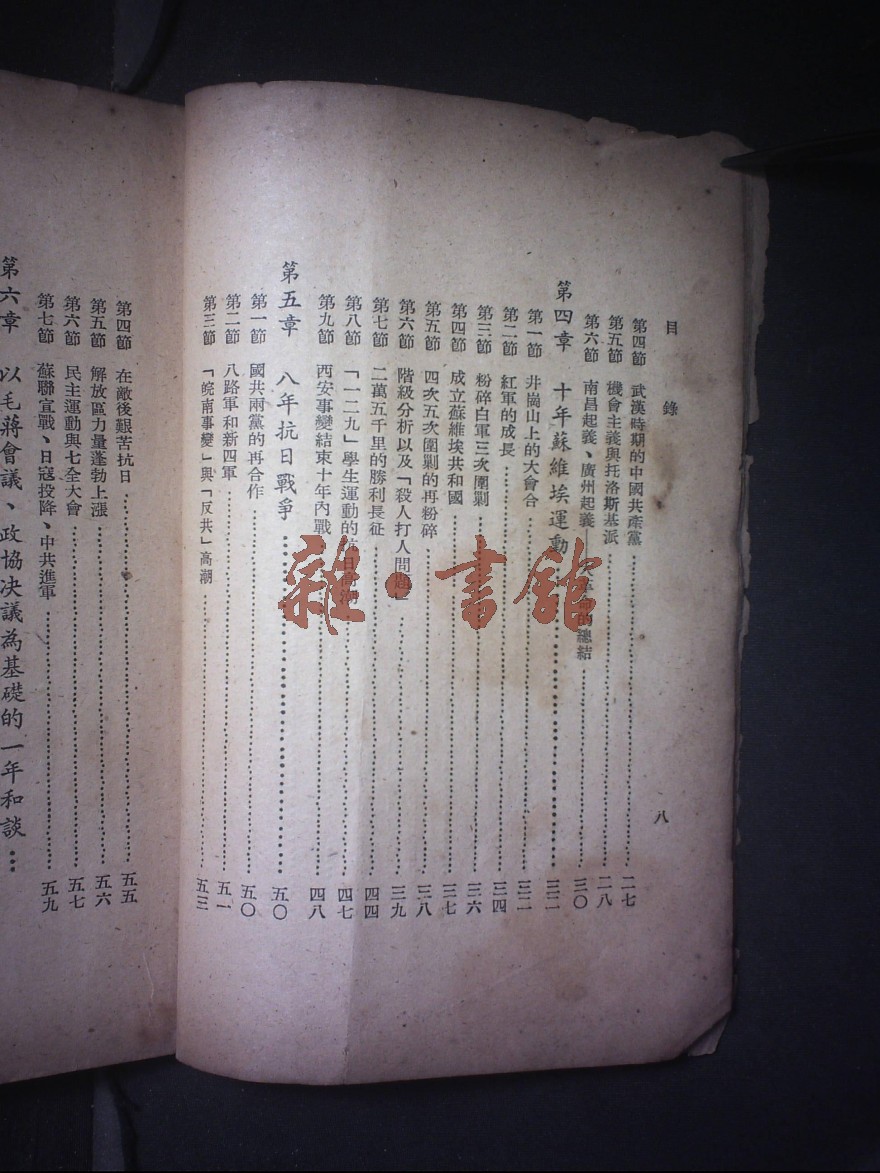 目錄
第四節 武漢時期的中國共產黨……二七
第五節 機會主義與托洛斯基派……二八
第六節 南昌起義、廣州起義——大革命的總結……三〇
第四章 十年蘇維埃運動……三二
第一節 井崗山上的大會合……三二
第二節 紅軍的成長……三四
第三節 粉碎白軍三次圍剿……三六
第四節 成立蘇維埃共和國……三七
第五節 四次五次圍剿的再粉碎……三八
第六節 階級分析以及「殺人打人問題」……三九
第七節 二萬五千里的勝利長征……四四
第八節 「一二九」學生運動的抗日高潮……四七
第九節 西安事變結束十年內戰……四八
第五章 八年抗日戰爭……五〇
第一節 國共兩黨的再合作……五〇
第二節 八路軍和新四軍……五一
第三節 「皖南事變」與「反共」高潮……五三
八
第四節 在敵後艱苦抗日……五五
第五節 解放區力量蓬勃上漲……五六
第六節 民主運動與七全大會……五七
第七節 蘇聯宣戰、日寇投降、中共進軍……五九
第六章 以毛蔣會議、政協決議為基礎的一年和談…
雜·書館